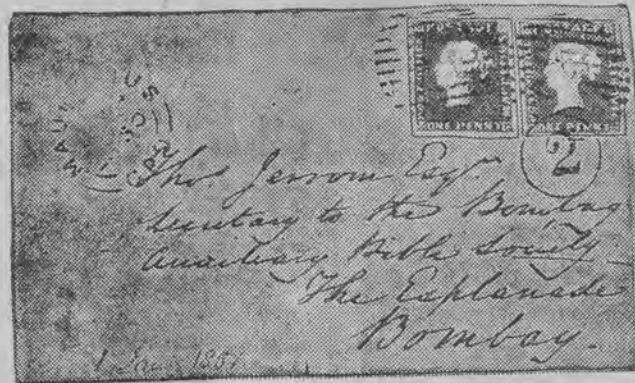 POSTAGE
ONE PENNY
2
Thos. Jerrom Esqr.
Secretary to the Bombay
Auxiliary Bible Society
The Esplanade
Bombay.